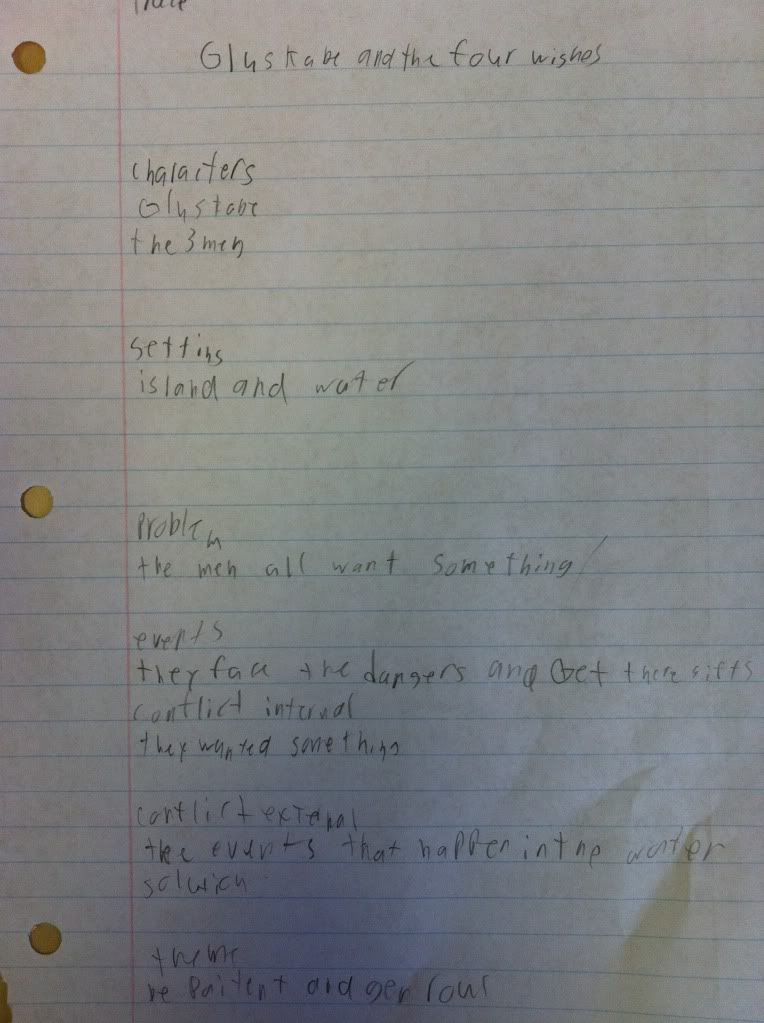 Gluskabe and the four wishes
characters
Gluskabe
the 3 men
setting
island and water
Problem
the men all want something
events
they face the dangers and Get there gifts
conflict internal
they wanted something
conflict external
the events that happen in the water
theme
be Paitent and